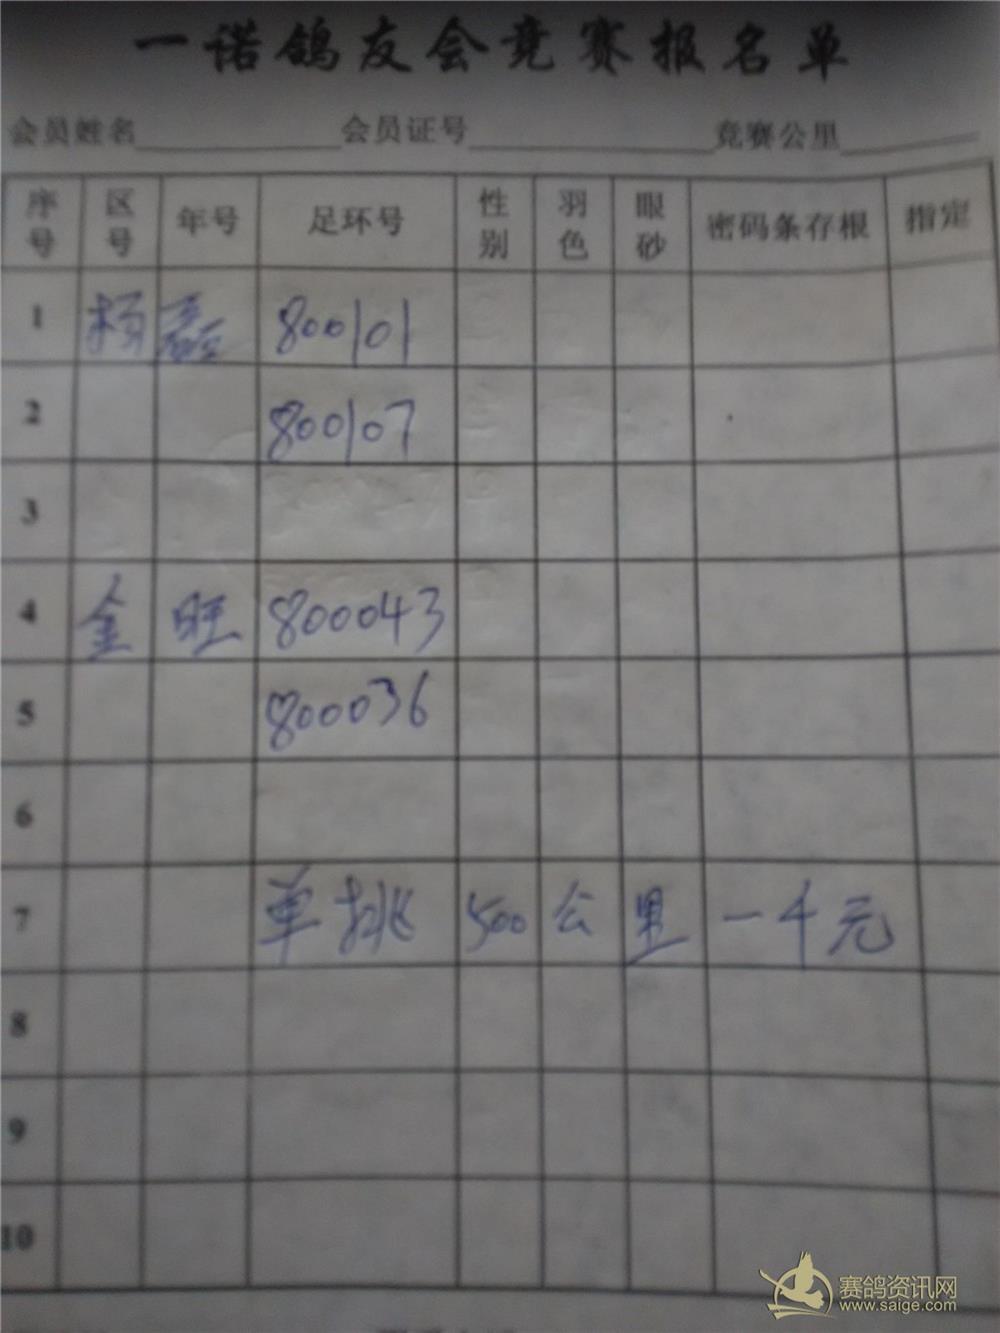 一诺鸽友会竞赛报名单
会员姓名 会员证号 竞赛公里
序号 区号 年号 足环号 性别 羽色 眼砂 密码条存根 指定
1 杨磊 800101
2 800107
3
4 金旺 800043
5 800036
6
7 单挑 500公里 一千元
8
9
10
赛鸽资讯网
www.saige.com